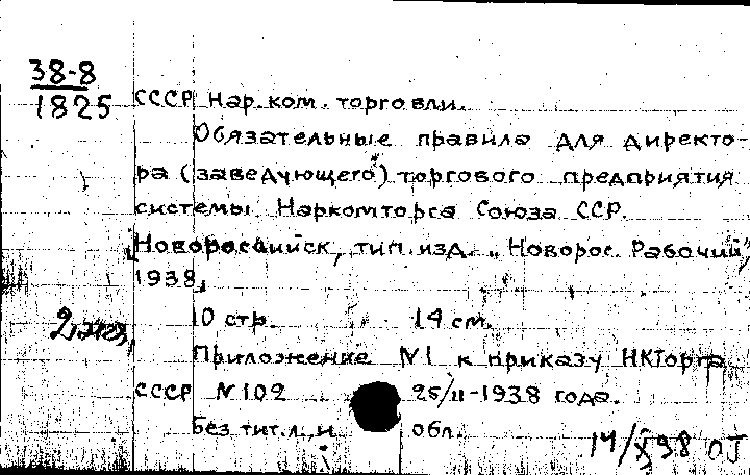 38-8
1825
СССР Нар. ком. торговли.
Обязательные правила для директо-
ра (заведующего) торгового предприятия
системы Наркомторга Союза ССР.
Новороссийск, тип. изд. „Новорос. Рабочий",
1938,
10 стр. 14 см.
2 экз,
Приложение №1 к приказу НКТорга
СССР №102 25/II-1938 года.
Без тит. л. и обл.
14/X 38 ОТ